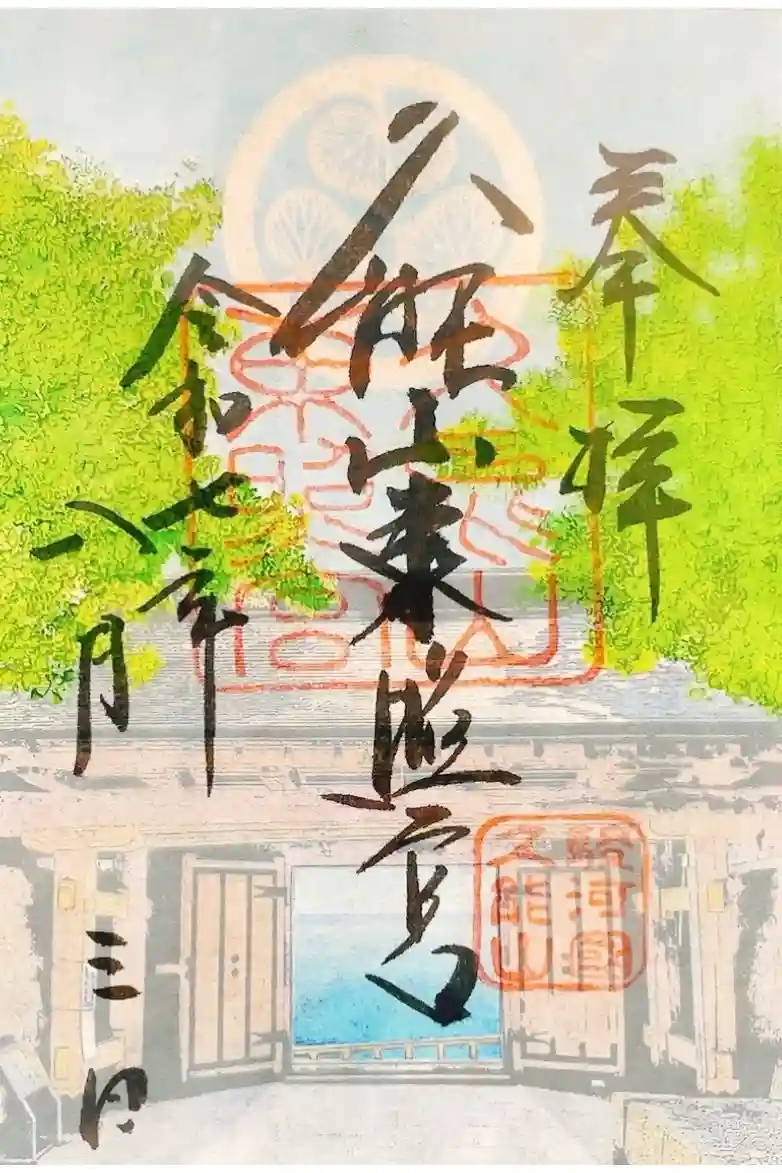 奉拝
久能山東照宮
駿河國
久能山
令和七年
八月三日